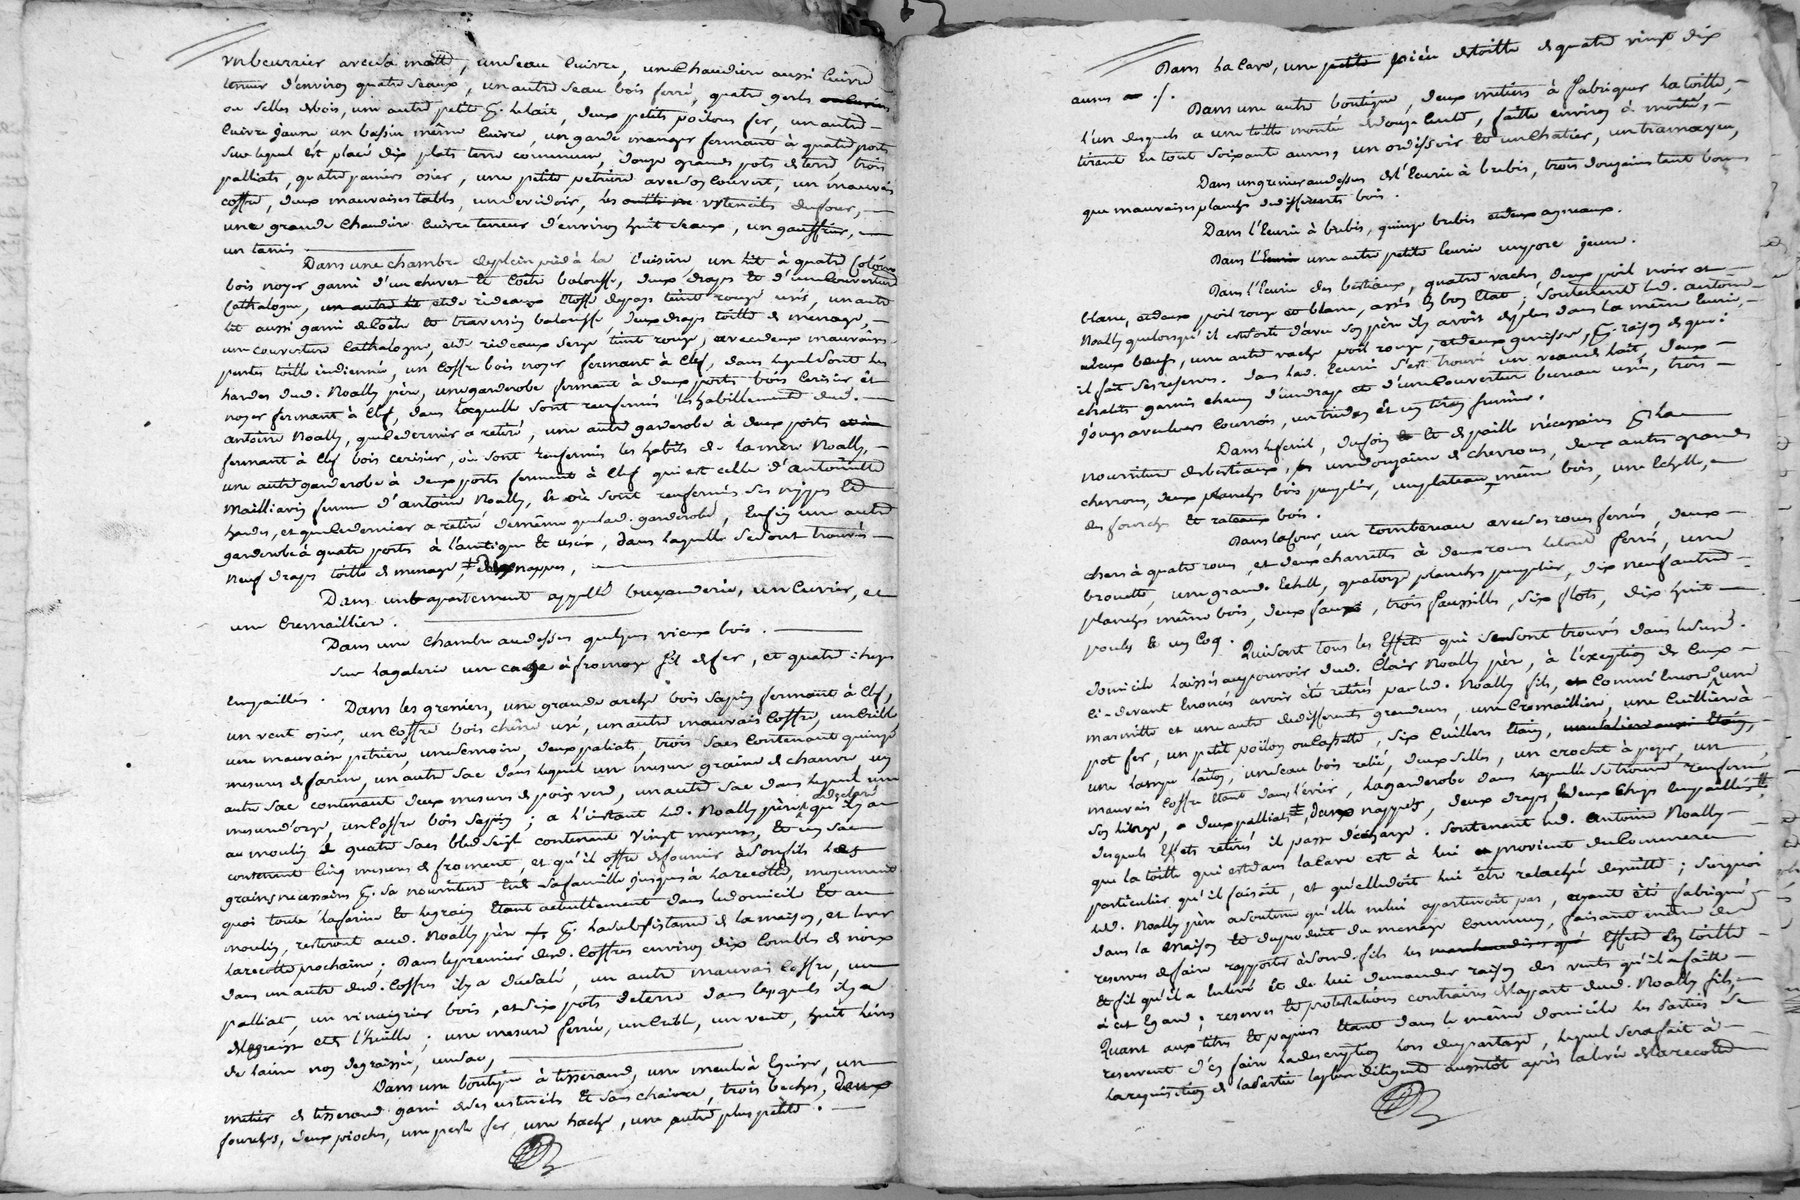 un beurrier avec sa matte, un seau cuivre, une chaudiere aussi cuivre
teneur d'environ quatre seaux, un autre seau bois ferré, quatre gerls
ou selles de bois, une autre petite p. le lait, deux petits poilons fer, un autre
cuivre jaune un bassin même cuivre, un garde manger fermant à quatre ports
sur lequel est placé dix plats terre commune, douze grands pots de terre, trois
palliats, quatre paniers osier, une petite petriere avec son couvert, un mauvais
coffre, deux mauvaises tables, un devidoir, les ustencils du four,
une grande chaudiere cuivre teneur d'environ huit seaux, un gauffrier,
un tamis
Dans une chambre de plein pied à la cuisine un lit à quatre colonnes
bois noyer garni d'un chevet et coëte balouffe, deux draps et d'une couverture
Cathalogne, et de rideaux étoffe du pays teint rouge usés, un autre
lit aussi garni de coëte et traversin balouffe, deux draps toille de menage,
une couverture Cathalogne, et de rideaux serge teint rouge, avec deux mauvaises
pentes toille indienne, un coffre bois noyer fermant à clef, dans lequel sont les
hardes dud. Noally père, une garderobe fermant à deux ports bois cerisier et
noyer fermant à clef, dans laquelle sont renfermés les habillements dud.
antoine Noally, que le dernier a retiré, une autre garderobe à deux ports
fermant à clef bois cerisier, où sont renfermés les habits de la mère Noally,
une autre garderobe à deux ports fermant à clef qui est celle d'antoinette
Mailliavin femme d'antoine Noally, et où sont renfermés ses nippes et
hardes, et que le dernier a retiré de même que lad. garderobe, Enfin une autre
garderobe à quatre ports à l'antique et usée, dans laquelle se sont trouvés
neuf draps toille de menage, nappes,
Dans un apartement appellé buyanderie, un cuvier, et
une Cremaillier.
Dans une chambre au dessus quelques vieux bois.
Sur la galerie une cage à fromage fil de fer, et quatre cheyses
empaillés.
Dans les greniers, une grande arche bois sapin fermant à clef,
un vent osier, un coffre bois chêne usé, un autre mauvais coffre, un crible
une mauvaise petriere, une semoire, deux paliats, trois sacs contenant quinze
mesures de farine, un autre sac dans lequel une mesure graine de chanvre, un
autre sac contenant deux mesures de pois verd, un autre sac dans lequel une
mesure d'orge, un coffre bois sapin; a l'instant led. Noally père a déclaré qu'il y a
au moulin quatre sacs bled seigle contenant vingt mesures, et un sac
contenant cinq mesures de froment, et qu'il offre de fournir à son fils les
grains necessaires p. sa nourriture et sa famille jusques à la recolte, moyennant
quoi toute la farine et le grain étant actuellement dans le domicile et au
moulin, resteront aud. Noally père p. la subsistance de la maison, et leur
la recolte prochaine; Dans le premier desd. coffres environ dix combles de noix
dans un autre desd. coffres il y a du salé, un autre mauvais coffre, un
palliat, un vinaigrier bois, et six pots de terre dans lesquels il y a
de la graisse et de l'huille; une mesure ferrée, un crible, un vent, huit livres
de laine non degraissée, un sac,
Dans une boutique à tisserand, une meule à Eguiser, un
metier de tisserand garni de ses ustencils et sans chaine, trois beches, deux
fourches, deux pioches, une perle fer, une hache, une autre plus petite.
Dans la cave, une petite pièce de toille de quatre vingt dix
aunes ./.
Dans une autre boutique, deux métiers à fabriquer la toille,
l'un desquels a une toille montée de douze cents, faitte environ à moitié,
tirant en tout soixante aunes, un ordissoir et un chatier, un tramoyeu,
Dans un grenier au dessus de l'Ecurie à brebis, trois douzaines tant bonnes
que mauvaises planches de differents bois.
Dans l'Ecurie à brebis, quinze brebis et deux agneaux.
Dans une autre petite Ecurie un porc jeune.
Dans l'Ecurie des bestiaux, quatre vaches, deux poil noir et
blanc, et deux poil rouge et blanc, assés en bon Etat; soutenant led. antoine
Noally que lorsqu'il est sorti d'avec son père il y avoit de plus dans la même Ecurie,
deux bœufs, une autre vache poil rouge, et deux genisses, p. raison de quoi
il fait ses reserves. Dans lad. Ecurie s'est trouvé un veau de lait, deux
chalits garnis chacun d'un drap et d'une couverture bureau usée, trois
jougs avec leurs courrois, un trident et un tire fumier.
Dans le fenil, du foin et de paille nécessaires p. la
nourriture des bestiaux, une douzaine de chevrons, deux autres grands
chevrons, deux planches bois peuplier, un plateau même bois, une Echelle,
des fourches et rateaux bois.
Dans la Cour, un tombereau avec ses roues ferrées, deux
chars à quatre roues, et deux charrettes à deux roues le tout ferré, une
brouette, une grande Echelle, quatorze planches peuplier, dix neuf autres
planches même bois, deux faux, trois faussilles, six flots, dix huit
poules et un coq. Qui sont tous les Effets qui se sont trouvés dans led.
domicile laissés au pouvoir dud. Clair Noally père, à l'exception de ceux
ci-devant Enoncés avoir été retirés par led. Noally fils, comme Encore une
marmitte et une autre de differente grandeur, une Cremaillier, une Cuillier à
pot fer, un petit poilon ou cassette, six cuilliers Etain,
une lampe laiton, un seau bois relié, deux selles, un crochet à peser, un
mauvais coffre étant dans l'évier, la garderobe dans laquelle se trouve renfermé
son linge, deux palliats, deux nappes, deux draps, et deux cheyses empaillées
desquels Effets retirés il passe décharge. Soutenant led. antoine Noally
que la toille qui est dans la cave est à lui et provient du Commerce
particulier qu'il faisoit, et qu'elle doit lui être relachée de suitte; surquoi
led. Noally père a soutenu qu'elle ne lui apartenoit pas, ayant été fabriquée
dans la maison et du produit du menage commun, faisant même des
reserves de faire rapporter à son d. fils les effets en toille
et fil qu'il a Enlevé et de lui demander raison des vents qu'il a faitte
à cet Egard; reserves et protestations contraires de la part dud. Noally fils,
Quant aux titres et papiers étant dans le même domicile les parties se
reservent d'en faire la description lors du partage, lequel sera fait à
la requisition de la partie la plus diligente aussitôt après la levée de la recolte